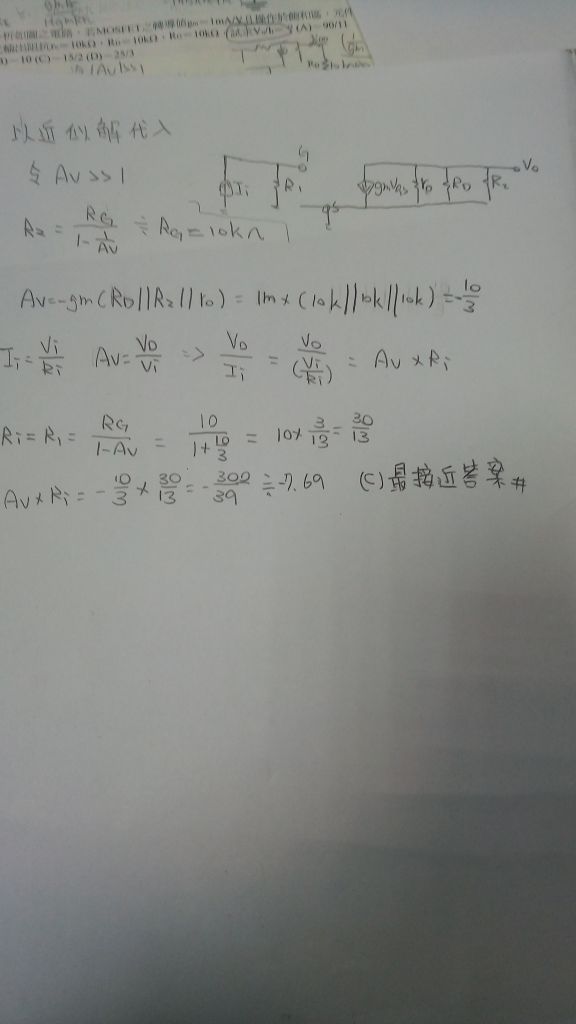 gm = 1mA/V
= 10kΩ，RD = 10kΩ，RG = 10kΩ
(A) -90/11
-10 (C) -15/2 (D) -25/3
以近似解代入
令 AV >> 1
G
Ii
R1
S
gmVgs
ro
RD
R2
Vo
R2 = RG / (1 - 1/AV) ≑ RG = 10kΩ
AV = -gm(RD||R2||ro) = 1m × (10k||10k||10k) = -10/3
Ii = Vi/Ri AV = Vo/Vi => Vo/Ii = Vo/(Vi/Ri) = AV × Ri
Ri = R1 = RG/(1-AV) = 10/(1+10/3) = 10 × 3/13 = 30/13
AV × Ri = -10/3 × 30/13 = -300/39 ≑ -7.69 (C)最接近答案#